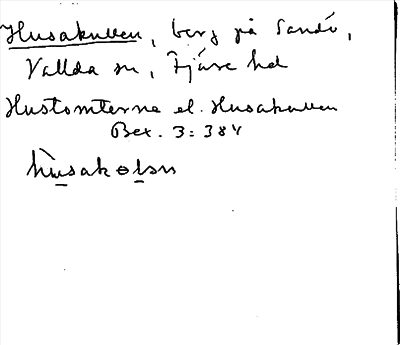 Husakullen, berg på Sandö,
Vallda sn, Fjäre hd
Hustomterne el. Husakullen
Bex. 3:384
hùsakolən